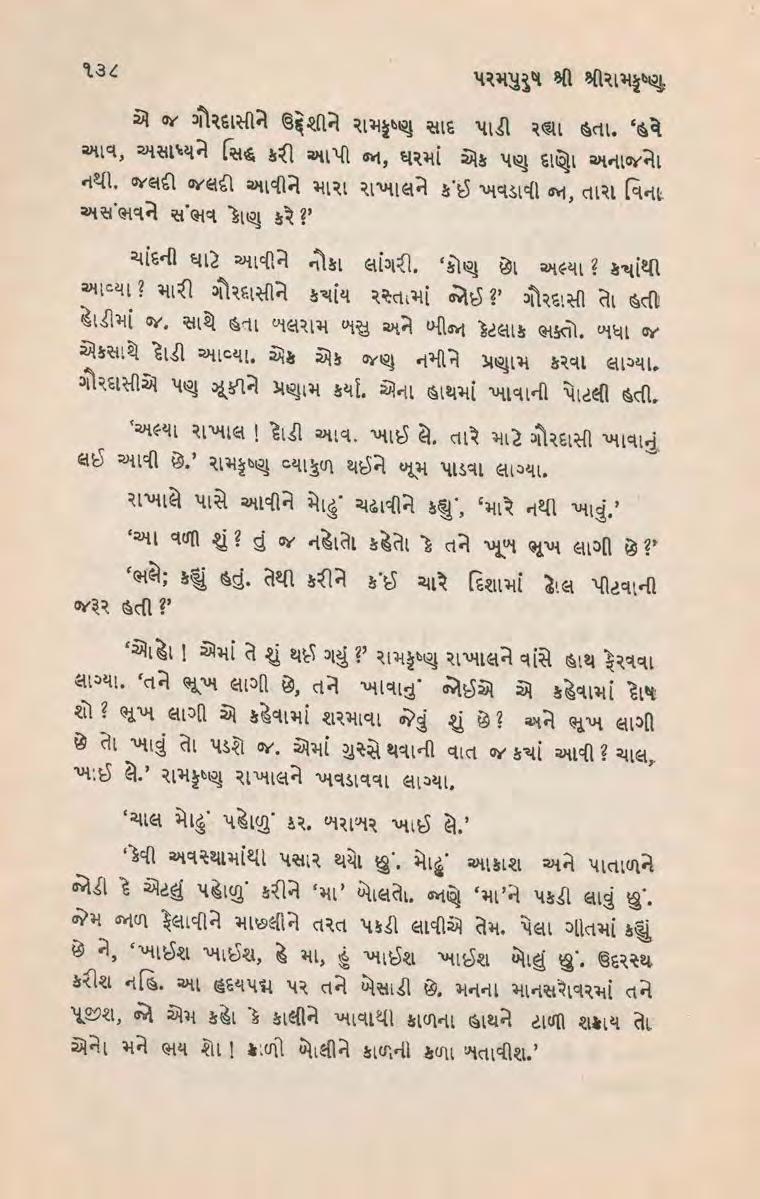 ૧૩૮
પરમપુરુષ શ્રી શ્રીરામકૃષ્ણ
એ જ ગૌરદાસીને ઉદ્દેશીને રામકૃષ્ણ સાદ પાડી રહ્યા હતા. ‘હવે
આવ, અસાધ્યને સિદ્ધ કરી આપી જા, ઘરમાં એક પણ દાણો અનાજનો
નથી. જલદી જલદી આવીને મારા રાખાલને કંઈ ખવડાવી જા, તારા વિના
અસંભવને સંભવ કોણ કરે ?’
ચાંદની ઘાટે આવીને નૌકા લાંગરી. ‘કોણ છો અલ્યા ? ક્યાંથી
આવ્યા ? મારી ગૌરદાસીને ક્યાંય રસ્તામાં જોઈ ?’ ગૌરદાસી તો હતી
હોડીમાં જ. સાથે હતા બલરામ બસુ અને બીજા કેટલાક ભક્તો. બધા જ
એકસાથે દોડી આવ્યા. એક એક જણ નમીને પ્રણામ કરવા લાગ્યા.
ગૌરદાસીએ પણ ઝૂકીને પ્રણામ કર્યા. એના હાથમાં ખાવાની પોટલી હતી.
‘અલ્યા રાખાલ ! દોડી આવ. ખાઈ લે. તારે માટે ગૌરદાસી ખાવાનું
લઈ આવી છે.’ રામકૃષ્ણ વ્યાકુળ થઈને બૂમ પાડવા લાગ્યા.
રાખાલે પાસે આવીને મોઢું ચઢાવીને કહ્યું, ‘મારે નથી ખાવું.’
‘આ વળી શું ? તું જ નહોતો કહેતો કે તને ખૂબ ભૂખ લાગી છે ?’
‘ભલે; કહ્યું હતું. તેથી કરીને કંઈ ચારે દિશામાં ઢોલ પીટવાની
જરૂર હતી ?’
‘ઓહો ! એમાં તે શું થઈ ગયું ?’ રામકૃષ્ણ રાખાલને વાંસે હાથ ફેરવવા
લાગ્યા. ‘તને ભૂખ લાગી છે, તને ખાવાનું જોઈએ એ કહેવામાં દોષ
શો ? ભૂખ લાગી એ કહેવામાં શરમાવા જેવું શું છે ? અને ભૂખ લાગી
છે તો ખાવું તો પડશે જ. એમાં ગુસ્સે થવાની વાત જ ક્યાં આવી ? ચાલ,
ખાઈ લે.’ રામકૃષ્ણ રાખાલને ખવડાવવા લાગ્યા.
‘ચાલ મોઢું પહોળું કર. બરાબર ખાઈ લે.’
‘કેવી અવસ્થામાંથી પસાર થયો છું. મોઢું આકાશ અને પાતાળને
જોડી દે એટલું પહોળું કરીને ‘મા’ બોલતો. જાણે ‘મા’ને પકડી લાવું છું.
જેમ જાળ ફેલાવીને માછલીને તરત પકડી લાવીએ તેમ. પેલા ગીતમાં કહ્યું
છે ને, ‘ખાઈશ ખાઈશ, હે મા, હું ખાઈશ ખાઈશ બોલું છું. ઉદરસ્થ
કરીશ નહિ. આ હૃદયપદ્મ પર તને બેસાડી છે. મનના માનસરોવરમાં તને
પૂજીશ, જો એમ કહો કે કાલીને ખાવાથી કાળના હાથને ટાળી શકાય તો
એનો મને ભય શો ! કાળી બોલીને કાળની કળા બતાવીશ.’